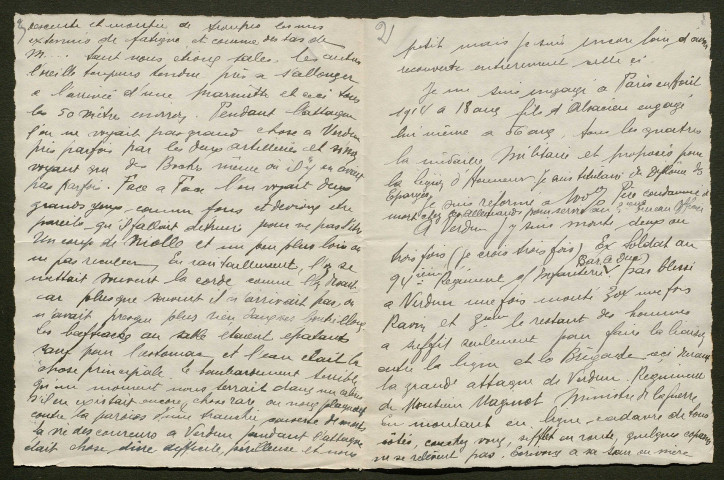 descente et montée de troupes
exténués de fatigue et comme des tas de
M... tant nous étions sales. Les autres
l'oreille toujours tendue près a s'allonger
a l'arrivée d'une marmitte et ceci tous
les 50 mètre environ. Pendant l'attaque
l'on ne voyait pas grand chose a Verdun
pris parfois par les deux artilleries et ne
voyant que des Boches même où il n'y en avait
pas parfois. Face a Face l'on voyait deux
grands yeux comme fous et devions être
pareils qu'il fallait détruire pour ne pas l'être
Un coup de et un peu plus loin ou
ne pas reculer. En ravitaillement, l'on se
mettait souvent la corde comme l'on disait
car plus que souvent il n'arrivait pas, on
n'avait presque plus rien
les au sable étaient épatants
sauf pour l'estomac, et l'eau était la
chose principale le bombardement terrible
qu'un moment nous terrait dans un abri
s'il en existait encore, chose rare ou nous plaquait
contre la parois d'une tranchée
la vie des coureurs a Verdun pendant l'attaque
était chose dure difficile, périlleuse et
2)
petit mais je suis encore loin d'avoir
recouvré entièrement celle ci
Je me suis engagé a Paris en Août
1914 a 18 ans fils d'Alsacien engagé
lui même a 50 ans, tous les quatres
la médaille Militaire et proposés pour
la légion d'Honneur Je suis titulaire du diplôme des
Éparges, Je suis réformé a 100% Père condamné a
mort chez les allemands
A Verdun j'y suis monté deux ou
trois fois (je crois trois fois) Ex Soldat au
94ième Régiment d'Infanterie (Bar le Duc) pas blessé
a Verdun une fois monté 304 une fois
Ravin et 3ième le restant des hommes
a suffit seulement pour faire la liaison
entre la ligne et la Brigade ceci durant
la grande attaque de Verdun. Régiment
de Monsieur Maginot Ministre de la guerre
En montant en ligne, cadavre de tous
côtés, couchez vous, sifflet en route, quelques copains
ne se relèvent pas.